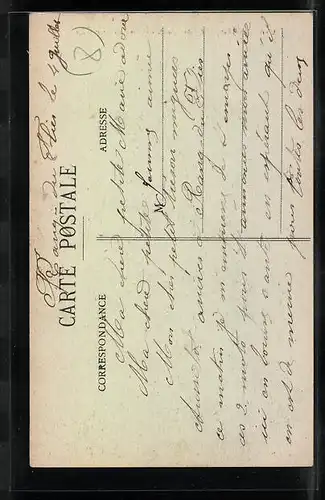 Rang du Fliers le 4 Juillet
(8)
CARTE POSTALE
CORRESPONDANCE
ADRESSE
M
Ma chère petite Marie adorée
Ma chère petite femme aimée
Mon cher petit mignon
arrivés à Rang du Fliers
ce matin je m'empresse de t'envoyer
ces 2 mots pour t' mon arrivée
ici en bonne santé en espérant qu'il
en est de même pour toutes les deux